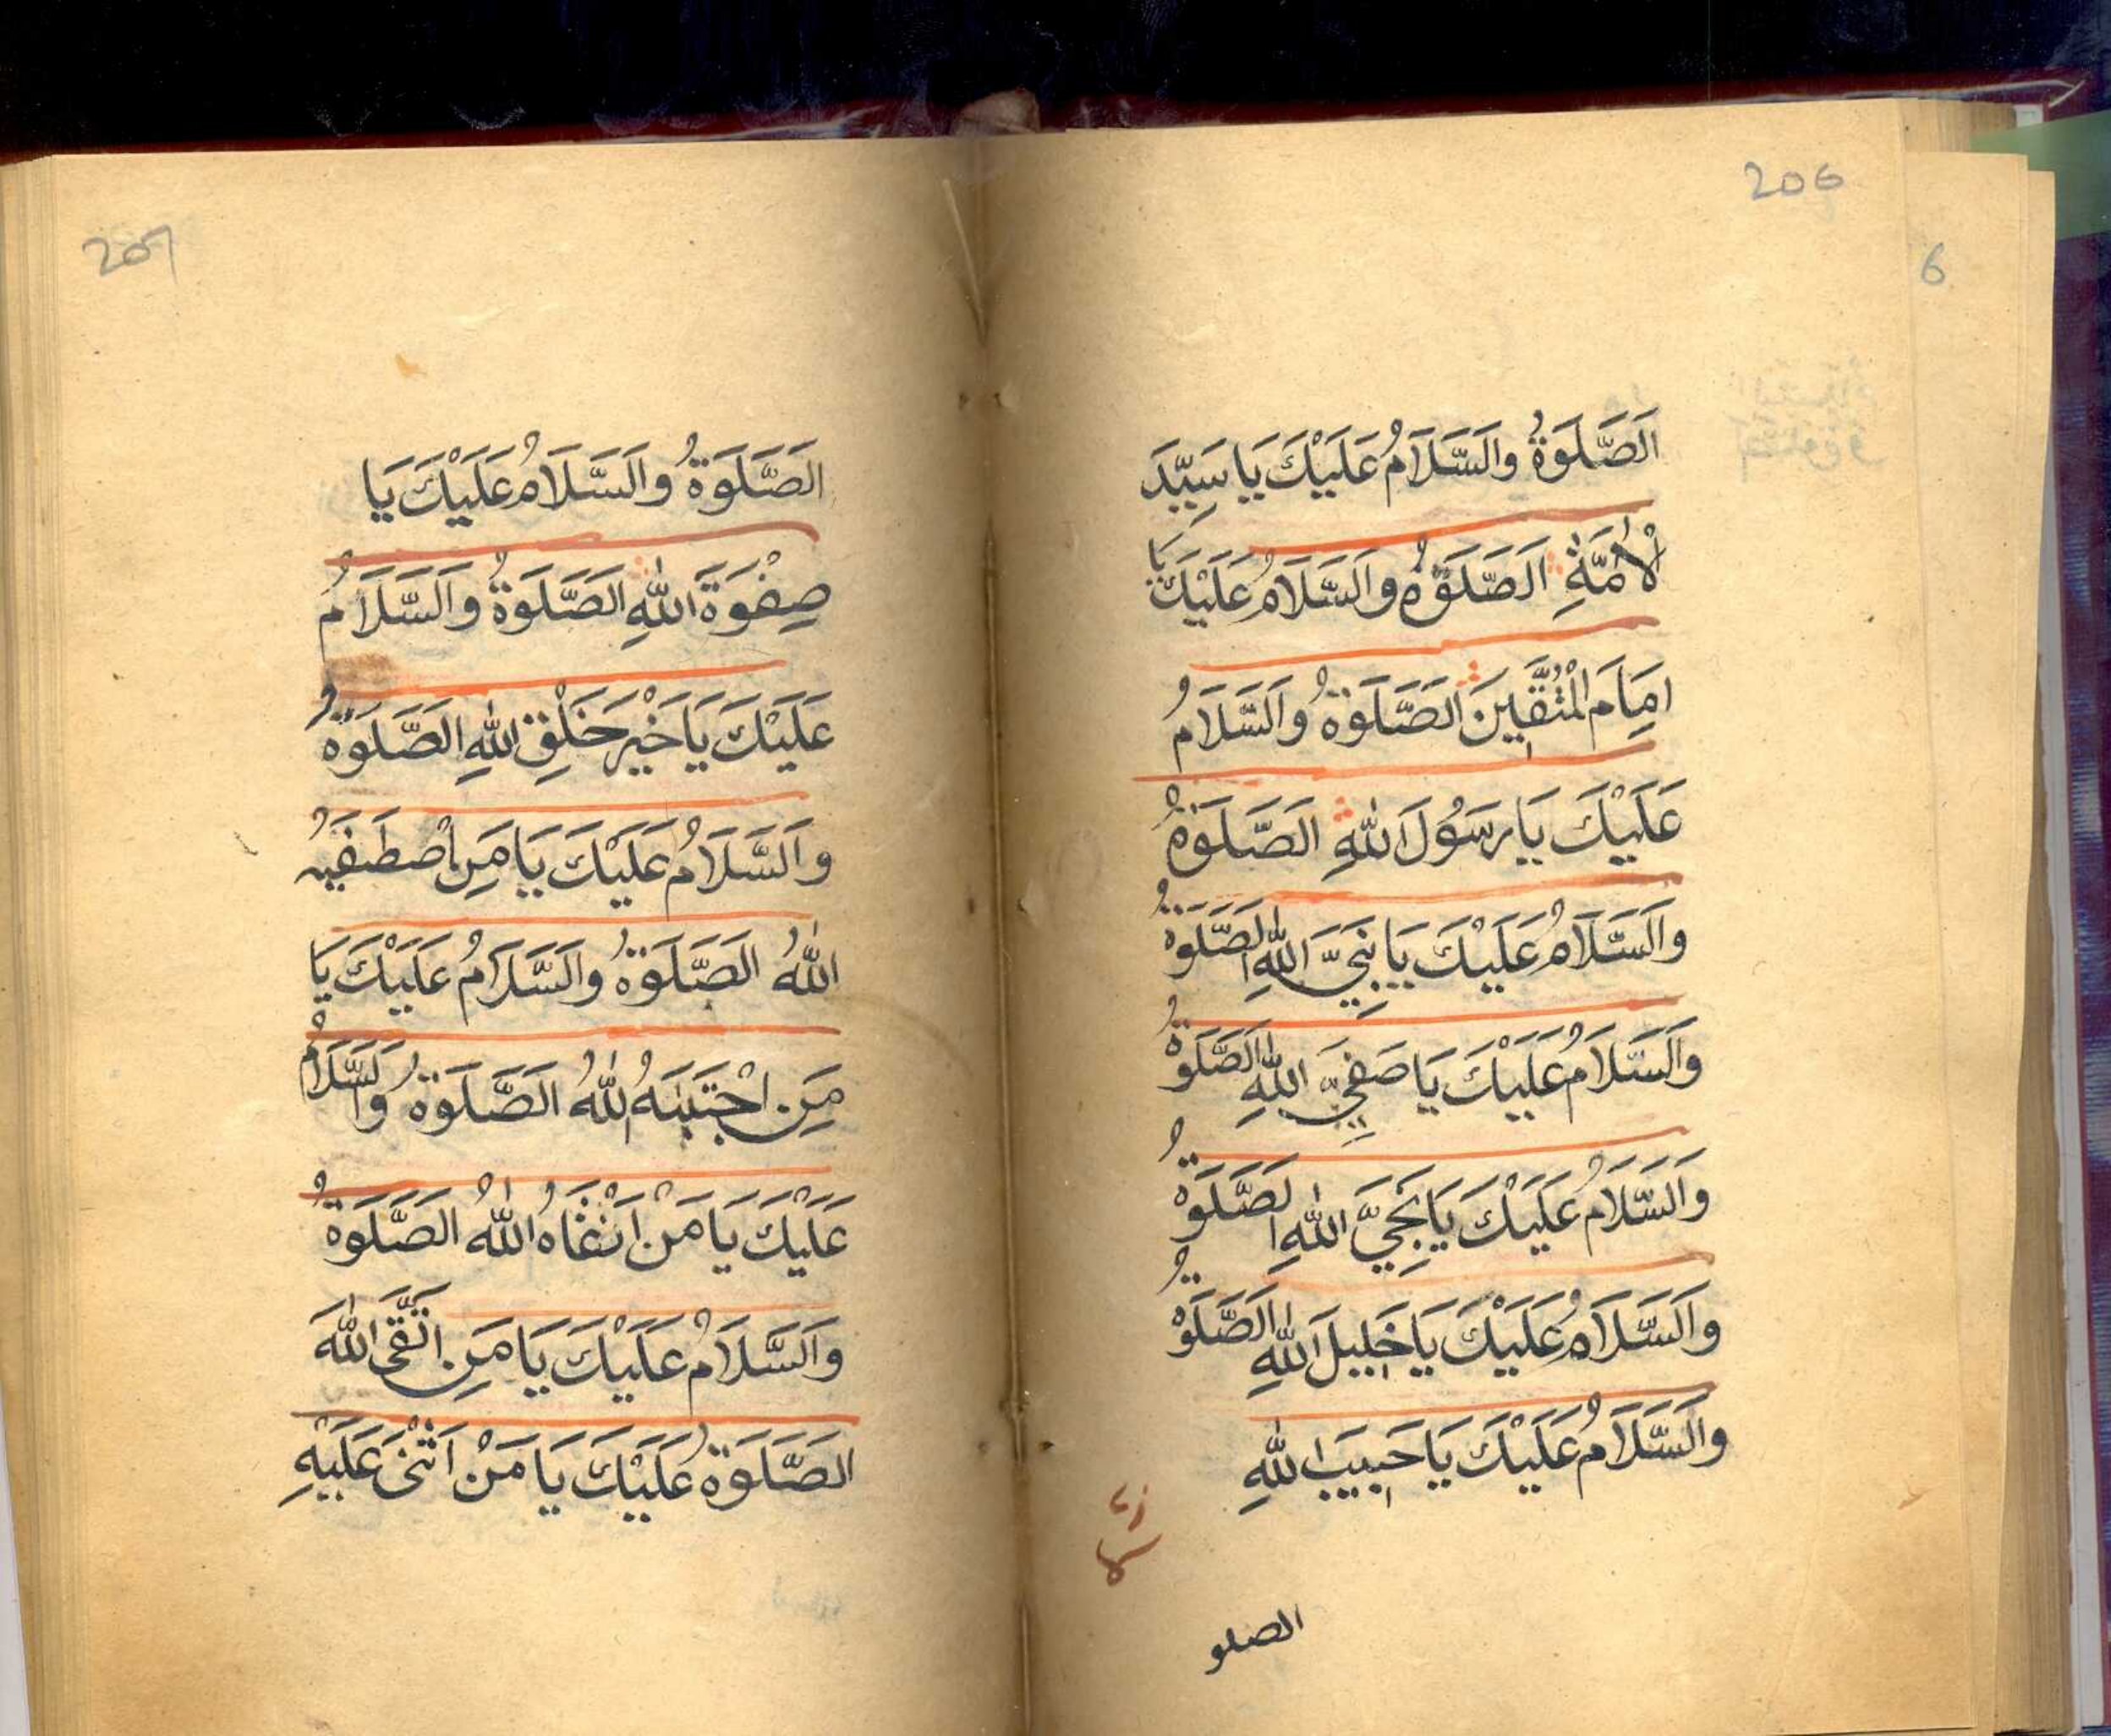 206
6
اَلصَّلَوةُ وَالسَّلَامُ عَلَيْكَ يَا سَيِّدَ
لْاُمَّةِ اَلصَّلَوةُ وَالسَّلَامُ عَلَيْكَ يَا
اِمَامَ الْمُتَّقِينَ الصَّلَوةُ وَالسَّلَامُ
عَلَيْكَ يَا رَسُولَ اللهِ الصَّلَوةُ
وَالسَّلَامُ عَلَيْكَ يَا نَبِيَّ اللهِ الصَّلَوةُ
وَالسَّلَامُ عَلَيْكَ يَا صَفِيَّ اللهِ الصَّلَوةُ
وَالسَّلَامُ عَلَيْكَ يَا نَجِيَّ اللهِ الصَّلَوةُ
وَالسَّلَامُ عَلَيْكَ يَا خَلِيلَ اللهِ الصَّلَوةُ
وَالسَّلَامُ عَلَيْكَ يَا حَبِيبَ اللهِ
الصلو
207
الصَّلَوةُ وَالسَّلَامُ عَلَيْكَ يَا
صِفْوَةَ اللهِ الصَّلَوةُ وَالسَّلَامُ
عَلَيْكَ يَا خَيْرَ خَلْقِ اللهِ الصَّلَوةُ
وَالسَّلَامُ عَلَيْكَ يَا مَنِ اصْطَفَيهُ
اللهُ الصَّلَوةُ وَالسَّلَامُ عَلَيْكَ يَا
مَنِ اجْتَبَيهُ اللهُ الصَّلَوةُ وَالسَّلَامُ
عَلَيْكَ يَا مَنْ اَنْقَاهُ اللهُ الصَّلَوةُ
وَالسَّلَامُ عَلَيْكَ يَا مَنِ اتَّقَى اللهَ
الصَّلَوةُ عَلَيْكَ يَا مَنْ اَثْنَى عَلَيْهِ